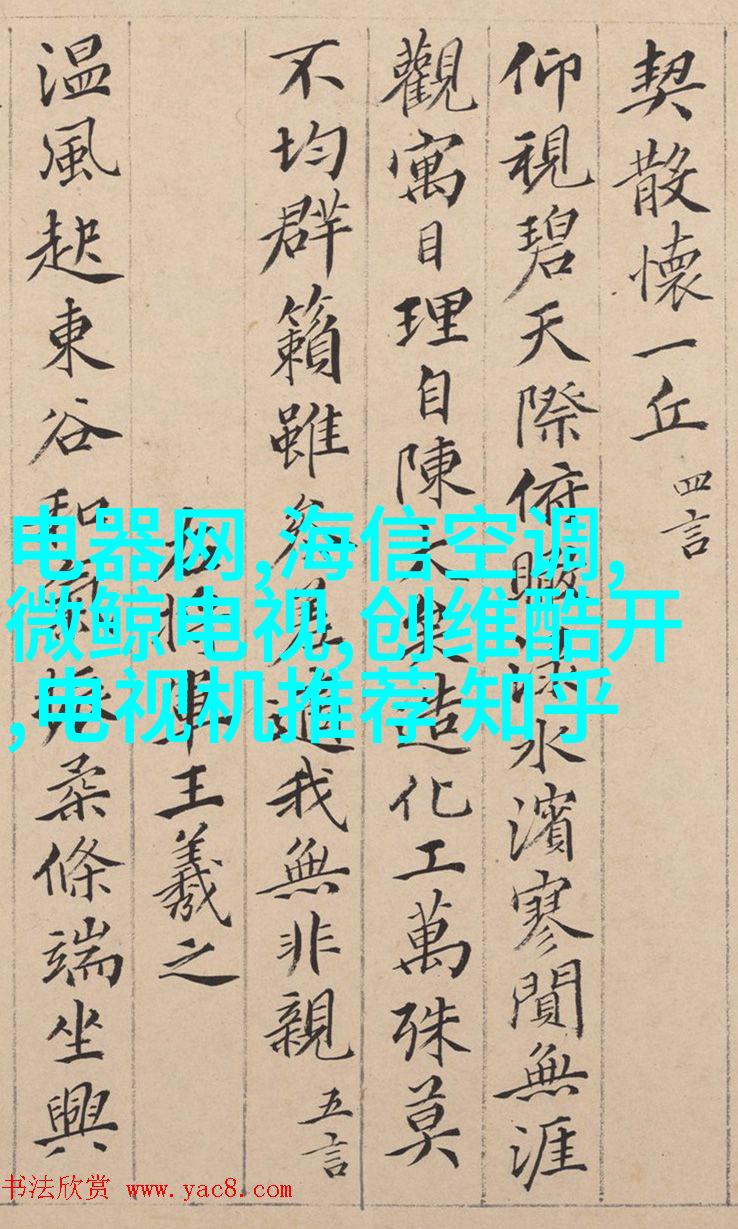 契散懷一丘 四言
仰視碧天際俯瞰淥水濱寥閴無涯
觀寓目理自陳大矣造化工萬殊莫
不均群籟雖參差適我無非親 五言
右將軍王羲之
溫風起東谷和氣振柔條端坐興
电器网,海信空调,
微鲸电视,创维酷开
,电视机推荐 知乎
书法欣赏 www.yac8.com